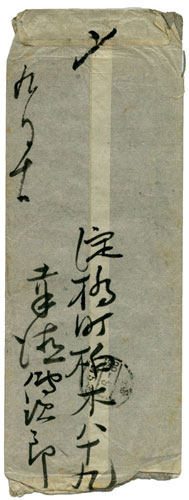 〆
淀橋町柏木八十九
幸徳傳次郎
九月